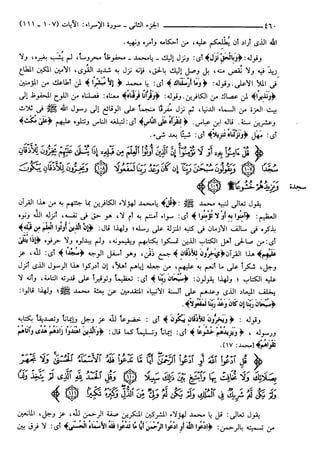 ٤٦٠ الجزء الثاني - سورة الإسراء: الآيات (١٠٧ - ١١١)
الله الذي أراد أن يطلعكم عليه، من أحكامه وأمره ونهيه.
وقوله: ﴿وَبِالْحَقِّ نَزَلَ﴾ أي: ونزل إليك - يا محمد - محفوظاً محروساً، لم يُشَب بغيره، ولا
زيد فيه ولا نُقص منه، بل وصل إليك بالحق، فإنه نزل به شديد القُوى، الأمين المكين المطاع
في الملأ الأعلى. وقوله: ﴿وَمَا أَرْسَلْنَاكَ﴾ أي: يا محمد ﴿إِلَّا مُبَشِّرًا﴾ لمن أطاعك من المؤمنين
﴿وَنَذِيرًا﴾ لمن عصاك من الكافرين. وقوله: ﴿وَقُرْآنًا فَرَقْنَاهُ﴾ معناه: فصلناه من اللوح المحفوظ إلى
بيت العزة من السماء الدنيا، ثم نزل مُفرقاً منجماً على الوقائع إلى رسول الله ﷺ في ثلاث
وعشرين سنة. قاله ابن عباس. ﴿لِتَقْرَأَهُ عَلَى النَّاسِ﴾ أي: لتبلغه الناس وتتلوه عليهم ﴿عَلَى مُكْثٍ﴾
أي: مهل ﴿وَنَزَّلْنَاهُ تَنْزِيلًا﴾ أي: شيئاً بعد شيء.
﴿قُلْ آمِنُوا بِهِ أَوْ لَا تُؤْمِنُوا إِنَّ الَّذِينَ أُوتُوا الْعِلْمَ مِنْ قَبْلِهِ إِذَا يُتْلَى عَلَيْهِمْ يَخِرُّونَ لِلْأَذْقَانِ
سُجَّدًا ۝ وَيَقُولُونَ سُبْحَانَ رَبِّنَا إِنْ كَانَ وَعْدُ رَبِّنَا لَمَفْعُولًا ۝ وَيَخِرُّونَ لِلْأَذْقَانِ يَبْكُونَ
وَيَزِيدُهُمْ خُشُوعًا ۩ ۝﴾
سجدة
يقول تعالى لنبيه محمد ﷺ: ﴿قُلْ﴾ يا محمد لهؤلاء الكافرين بما جئتهم به من هذا القرآن
العظيم: ﴿آمِنُوا بِهِ أَوْ لَا تُؤْمِنُوا﴾ أي: سواء آمنتم به أم لا، هو حق في نفسه، أنزله الله ونوه
بذكره في سالف الأزمان في كتبه المنزلة على رسله؛ ولهذا قال: ﴿إِنَّ الَّذِينَ أُوتُوا الْعِلْمَ مِنْ قَبْلِهِ﴾
أي: من صالحي أهل الكتاب الذين تمسكوا بكتابهم ويقيمونه، ولم يبدلوه ولا حرفوه ﴿إِذَا يُتْلَى
عَلَيْهِمْ﴾ هذا القرآن ﴿يَخِرُّونَ لِلْأَذْقَانِ﴾ جمع ذَقْن، وهو أسفل الوجه ﴿سُجَّدًا﴾ أي: لله، عز
وجل، شكراً على ما أنعم به عليهم، من جعله إياهم أهلاً، إن أدركوا هذا الرسول الذي أنزل
عليه الكتاب؛ ولهذا يقولون: ﴿سُبْحَانَ رَبِّنَا﴾ أي: تعظيماً وتوقيراً على قدرته التامة، وأنه لا
يخلف الميعاد الذي وعدهم على ألسنة الأنبياء المتقدمين عن بعثة محمد ﷺ؛ ولهذا قالوا:
﴿سُبْحَانَ رَبِّنَا إِنْ كَانَ وَعْدُ رَبِّنَا لَمَفْعُولًا﴾.
وقوله: ﴿وَيَخِرُّونَ لِلْأَذْقَانِ يَبْكُونَ﴾ أي: خضوعاً لله عز وجل وإيماناً وتصديقاً بكتابه
ورسوله، ﴿وَيَزِيدُهُمْ خُشُوعًا﴾ أي: إيماناً وتسليماً كما قال: ﴿وَالَّذِينَ اهْتَدَوْا زَادَهُمْ هُدًى وَآتَاهُمْ
تَقْوَاهُمْ﴾ [محمد: ١٧].
﴿قُلِ ادْعُوا اللَّهَ أَوِ ادْعُوا الرَّحْمَٰنَ أَيًّا مَا تَدْعُوا فَلَهُ الْأَسْمَاءُ الْحُسْنَىٰ وَلَا تَجْهَرْ
بِصَلَاتِكَ وَلَا تُخَافِتْ بِهَا وَابْتَغِ بَيْنَ ذَٰلِكَ سَبِيلًا ۝ وَقُلِ الْحَمْدُ لِلَّهِ الَّذِي لَمْ يَتَّخِذْ وَلَدًا
وَلَمْ يَكُنْ لَهُ شَرِيكٌ فِي الْمُلْكِ وَلَمْ يَكُنْ لَهُ وَلِيٌّ مِنَ الذُّلِّ وَكَبِّرْهُ تَكْبِيرًا ۝﴾
يقول تعالى: قل يا محمد لهؤلاء المشركين المنكرين صفة الرحمن لله، عز وجل، المانعين
من تسميته بالرحمن: ﴿ادْعُوا اللَّهَ أَوِ ادْعُوا الرَّحْمَٰنَ أَيًّا مَا تَدْعُوا فَلَهُ الْأَسْمَاءُ الْحُسْنَىٰ﴾ أي: لا فرق بين